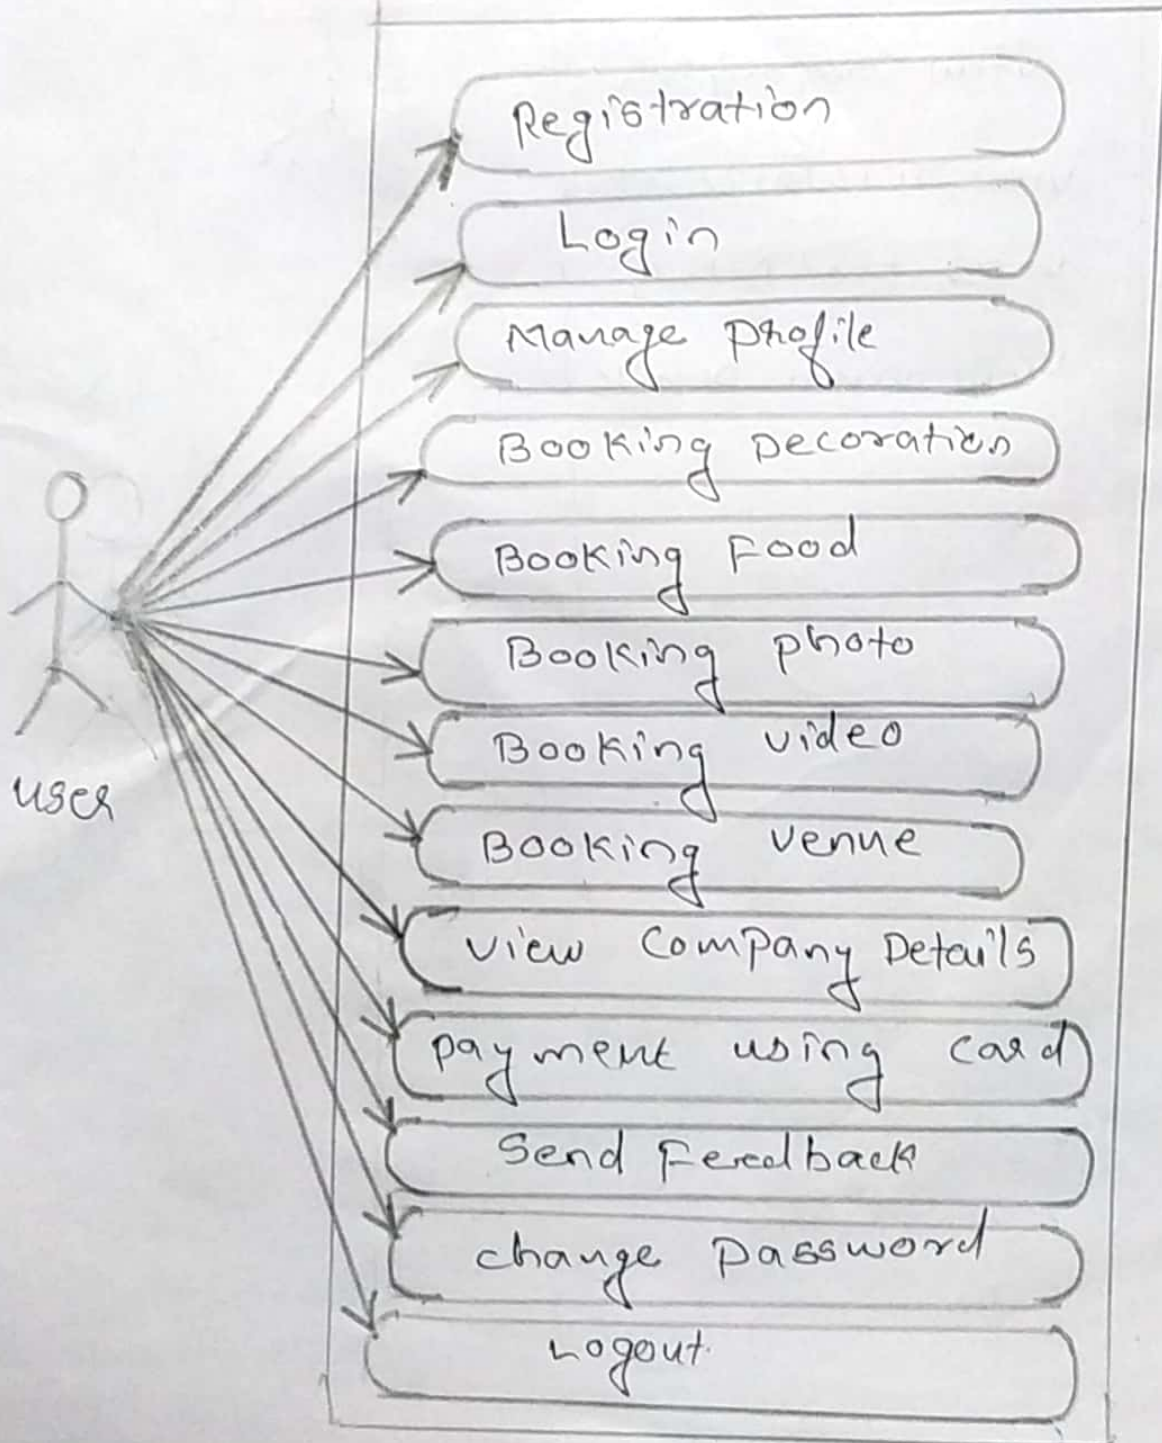 Registration
Login
Manage profile
Booking Decoration
Booking Food
Booking photo
Booking video
user
Booking venue
view Company Details
payment using card
Send Feedback
change password
Logout